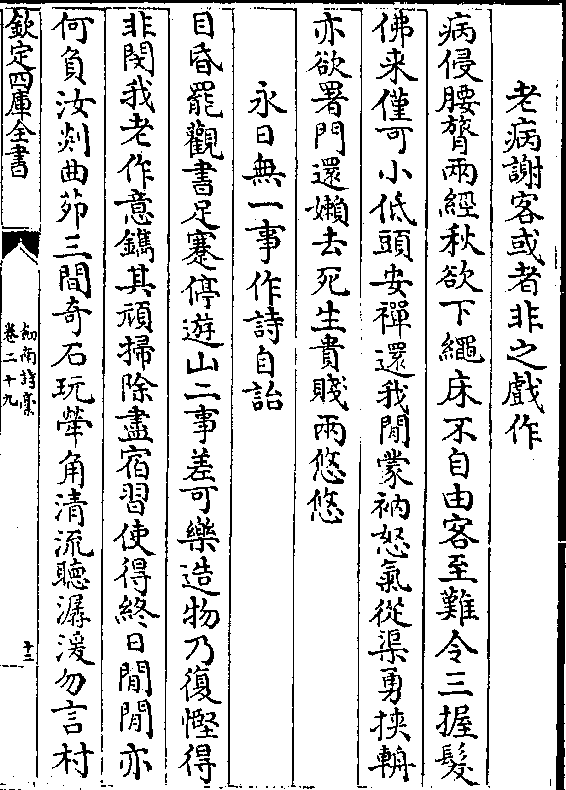 老病謝客或者非之戲作
病侵腰膂兩經秋欲下繩床不自由客至難令三握髪
佛来僅可小低頭安禪還我閒蒙衲怒氣從渠勇挾輈
亦欲署門還嬾去死生貴賤兩悠悠
永日無一事作詩自詒
目昏罷觀書足蹇停遊山二事差可樂造物乃復慳得
非閔我老作意鐫其頑掃除盡宿習使得終日閒閒亦
何負汝剡曲茆三間奇石玩犖角清流聽潺湲勿言村
欽定四庫全書
劍南詩藁
卷二十九
十三